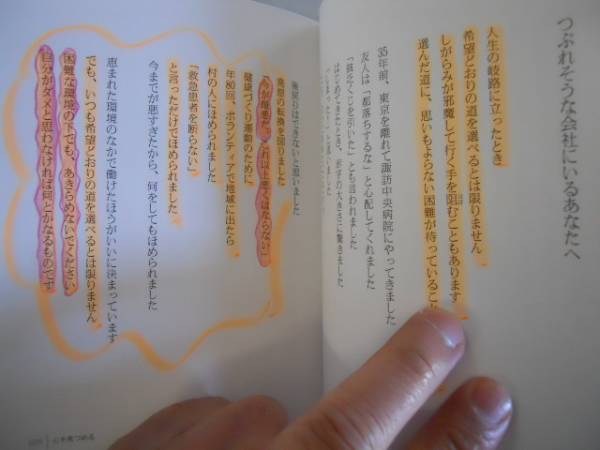 つぶれそうな会社にいるあなたへ
人生の岐路に立ったとき
希望どおりの道を選べるとは限りません
しがらみが邪魔して行く手を阻むこともあります
選んだ道に、思いもよらない困難が待っているこ
35年前、東京を離れて諏訪中央病院にやってきました
友人は「都落ちするな」と心配してくれました
「貧乏くじを引いた」とも言われました
はじめてきたとき、赤字の大きさに驚きました
後戻りはできないと思いました
発想の転換を図りました
「今が最悪だ。これ以上悪くはならない」
健康づくり運動のために
年80回、ボランティアで地域に出たら
村の人にほめられました
「救急患者を断らない」
と言っただけでほめられました
今までが悪すぎたから、何をしてもほめられました
恵まれた環境のなかで働けたほうがいいに決まっています
でも、いつも希望どおりの道を選べるとは限りません
困難な環境の下でも、あきらめないでください
自分がダメと思わなければ何とかなるものです
心を見つめる